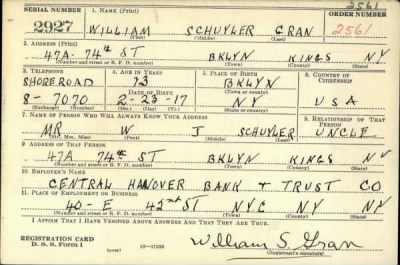 2561
SERIAL NUMBER 1. NAME (Print) ORDER NUMBER
2927 WILLIAM SCHUYLER GRAN 2561
(First) (Middle) (Last)
2. ADDRESS (Print)
47A 74th ST BKLYN KINGS N.Y.
(Number and street or R. F. D. number) (Town) (County) (State)
3. TELEPHONE 4. AGE IN YEARS 5. PLACE OF BIRTH 6. COUNTRY OF CITIZENSHIP
SHOREROAD 23 BKLYN
DATE OF BIRTH (Town or county)
8-7070 2-23-17 NY USA
(Exchange) (Number) (Mo.) (Day) (Yr.) (State or country)
7. NAME OF PERSON WHO WILL ALWAYS KNOW YOUR ADDRESS 8. RELATIONSHIP OF THAT PERSON
MR W J SCHUYLER UNCLE
(Mr., Mrs., Miss) (First) (Middle) (Last)
9. ADDRESS OF THAT PERSON
47A 74th ST BKLYN KINGS NY
(Number and street or R. F. D. number) (Town) (County) (State)
10. EMPLOYER'S NAME
CENTRAL HANOVER BANK + TRUST CO
11. PLACE OF EMPLOYMENT OR BUSINESS
40-E 42nd ST NYC NY
(Number and street or R. F. D. number) (Town) (County) (State)
I AFFIRM THAT I HAVE VERIFIED ABOVE ANSWERS AND THAT THEY ARE TRUE.
REGISTRATION CARD
D. S. S. Form 1 (over) 16—17105 William S. Gran
(Registrant's signature)